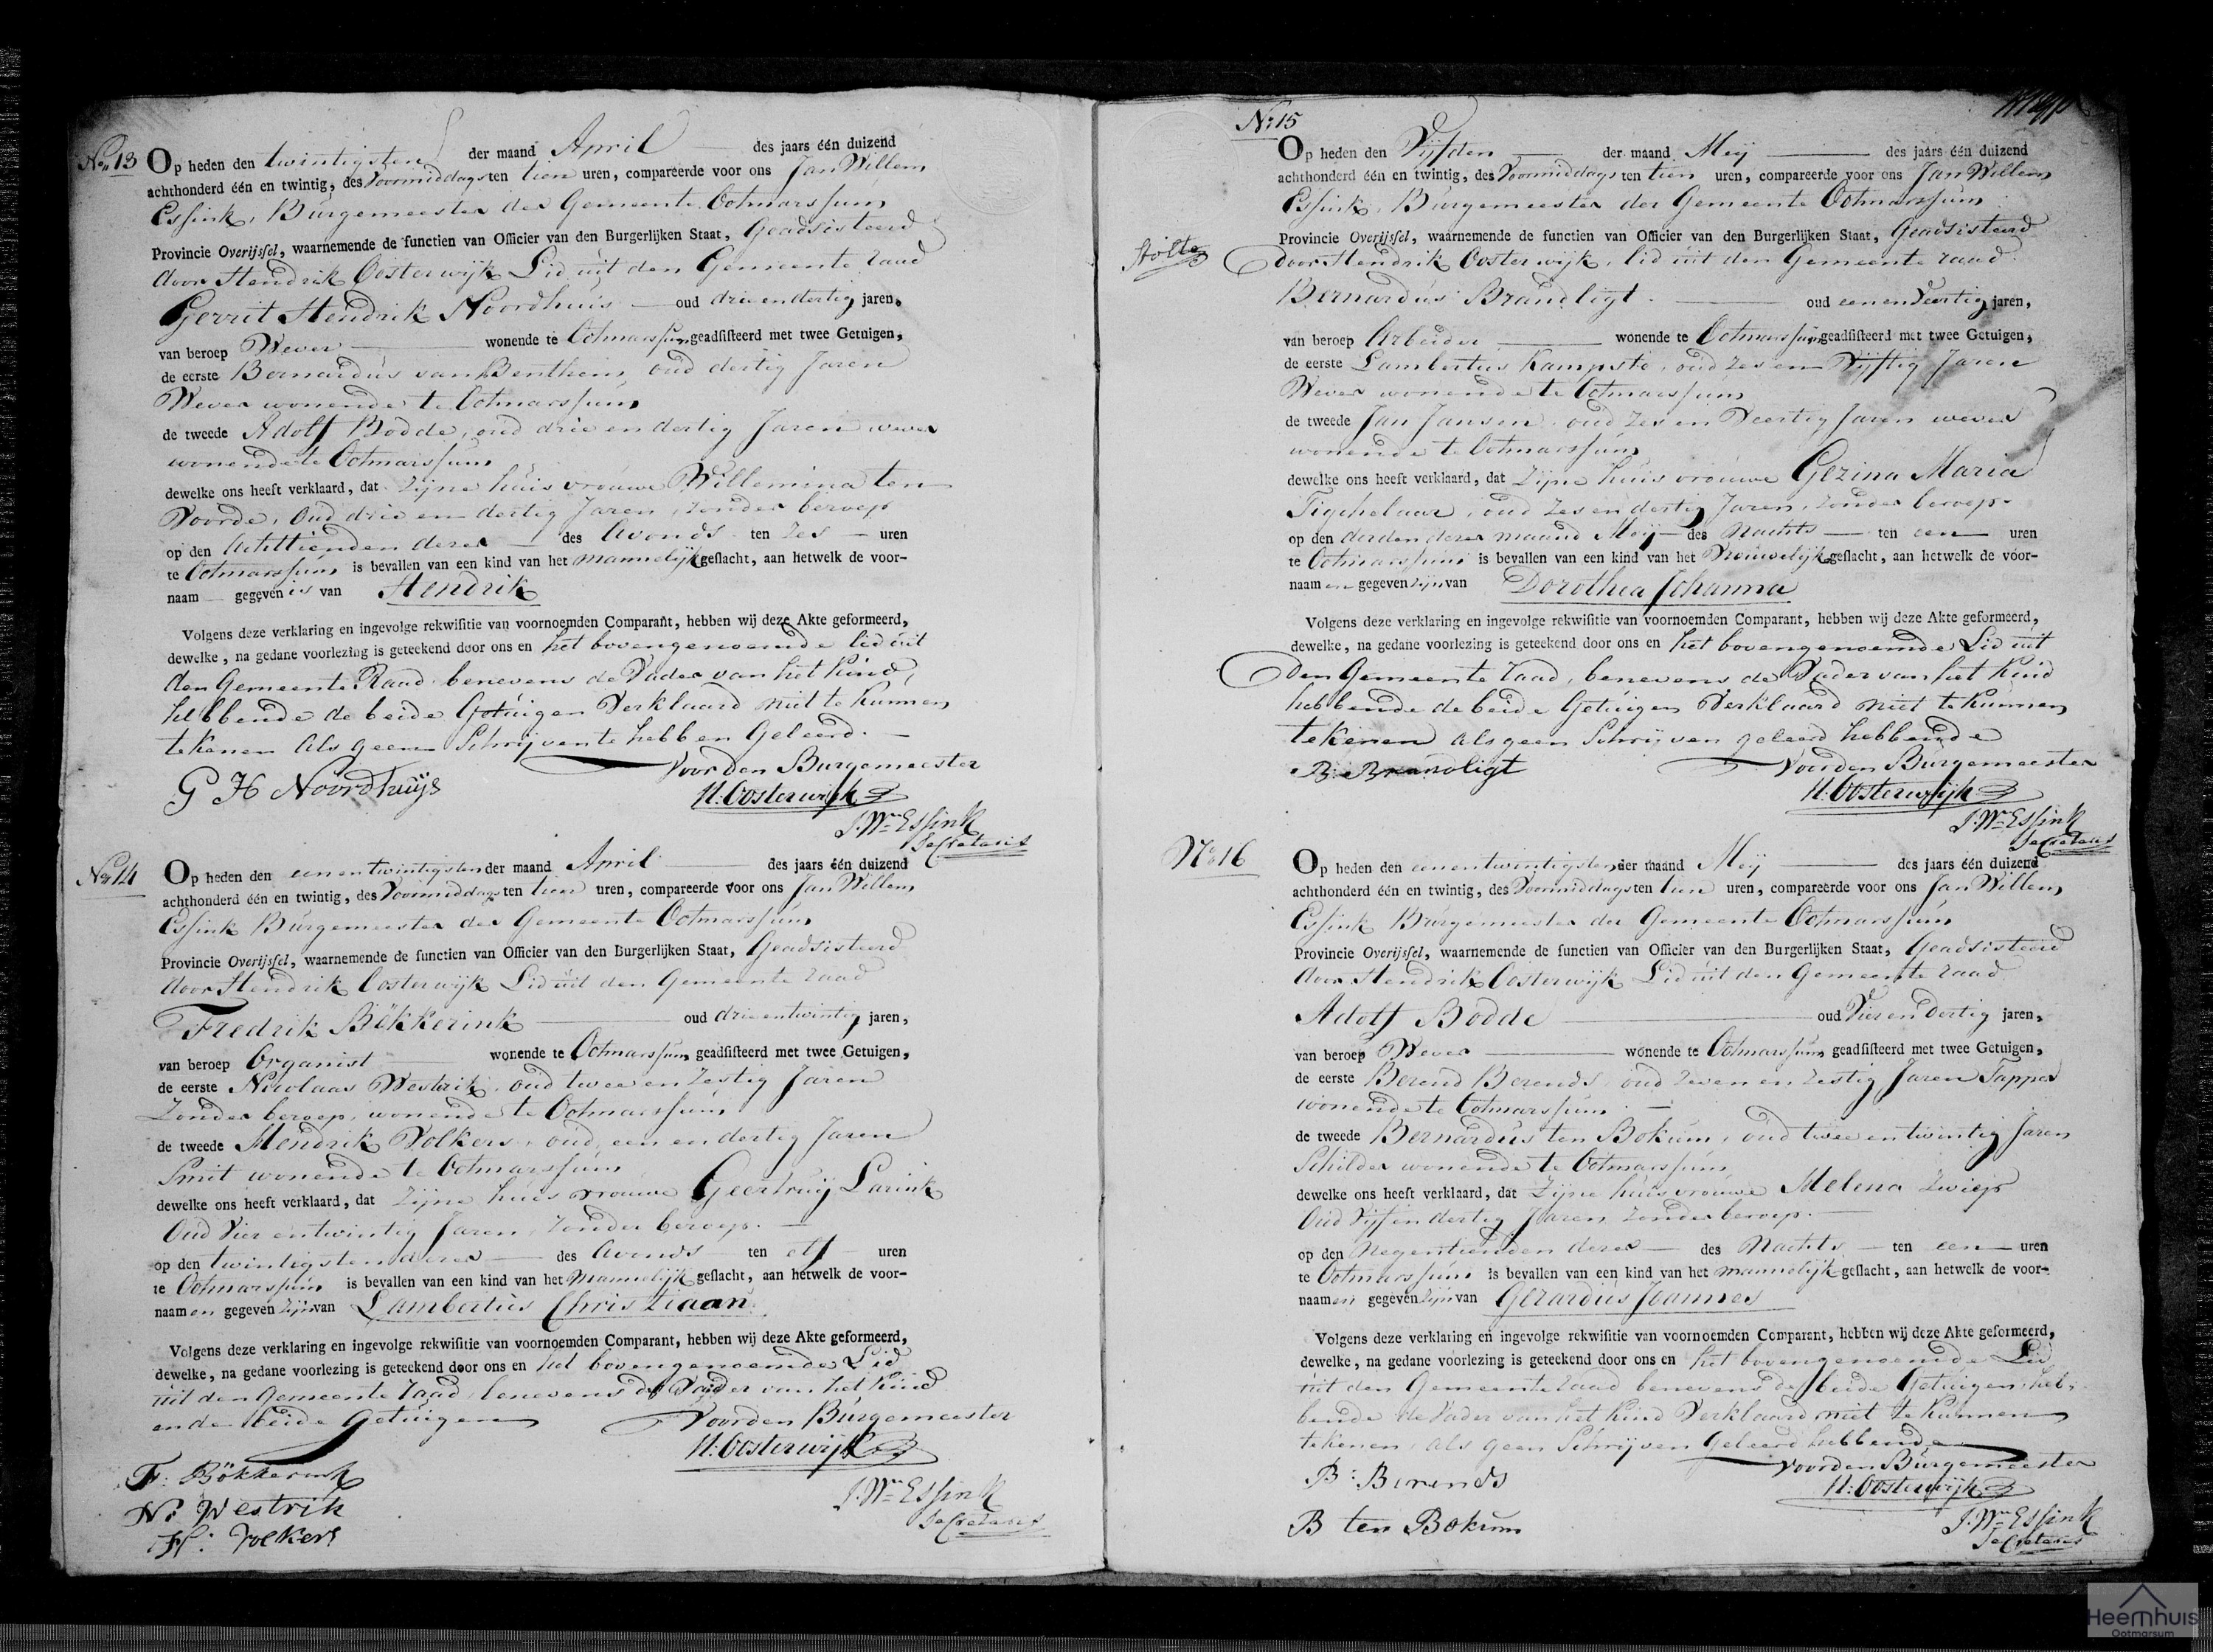 No. 13 Op heden den twintigsten der maand April des jaars één duizend
achthonderd één en twintig, des Voormiddags ten tien uren, compareerde voor ons Jan Willem
Essink, Burgemeester der Gemeente Ootmarssum
Provincie Overijssel, waarnemende de functien van Officier van den Burgerlijken Staat, Geadsisteerd
door Hendrik Oosterwijk Lid uit den Gemeente raad
Gerrit Hendrik Noordhuis oud drie en dertig jaren,
van beroep Wever wonende te Ootmarssum geadsisteerd met twee Getuigen,
de eerste Bernardus van Benthem oud dertig Jaren
Wever wonende te Ootmarssum
de tweede Adolf Bodde, oud drie en dertig Jaren wever
wonende te Ootmarssum
dewelke ons heeft verklaard, dat Zijne huisvrouwe Willemina ten
Voorde, Oud drie en dertig Jaren, zonder beroep
op den Achttienden dezer des Avonds ten zes uren
te Ootmarssum is bevallen van een kind van het mannelijk geslacht, aan hetwelk de voor-
naam gegeven is van Hendrik
Volgens deze verklaring en ingevolge rekwisitie van voornoemden Comparant, hebben wij deze Akte geformeerd,
dewelke, na gedane voorlezing is geteekend door ons en het bovengenoemde lid uit
den Gemeente Raad benevens de Vader van het Kind,
hebbende de beide Getuigen Verklaard niet te kunnen
tekenen als geen Schrijven te hebben Geleerd.
Voor den Burgemeester
G H Noordhuijs H: Oosterwijk
J. Wm Essink
Secretaris
No. 14 Op heden den eenentwintigsten der maand April des jaars één duizend
achthonderd één en twintig, des Voormiddags ten tien uren, compareerde voor ons Jan Willem
Essink Burgemeester der Gemeente Ootmarssum
Provincie Overijssel, waarnemende de functien van Officier van den Burgerlijken Staat, Geadsisteerd
door Hendrik Oosterwijk Lid uit den Gemeente raad
Fredrik Bökkerink oud drie en twintig jaren,
van beroep Organist wonende te Ootmarssum geadsisteerd met twee Getuigen,
de eerste Nicolaas Westrik, oud twee en Zestig Jaren
Zonder beroep, wonende te Ootmarssum
de tweede Hendrik Volkers, oud een en dertig Jaren
Smit wonende te Ootmarssum
dewelke ons heeft verklaard, dat Zijne huisvrouwe Geertruij Larink
Oud Vier en twintig Jaren, Zonder beroep.
op den twintigsten dezer des Avonds ten elf uren
te Ootmarssum is bevallen van een kind van het Mannelijk geslacht, aan hetwelk de voor-
naamen gegeven zijn van Lambertus Christiaan
Volgens deze verklaring en ingevolge rekwisitie van voornoemden Comparant, hebben wij deze Akte geformeerd,
dewelke, na gedane voorlezing is geteekend door ons en het bovengenoemde Lid
uit den Gemeente raad, benevens de Vader van het Kind
en de beide Getuigen
Voor den Burgemeester
H: Oosterwijk
F: Bökkerink
J. Wm Essink
N: Westrik Secretaris
H: Volkers
No 15
Op heden den Vijfden der maand Meij des jaars één duizend
achthonderd één en twintig, des Voormiddags ten tien uren, compareerde voor ons Jan Willem
Essink, Burgemeester der Gemeente Ootmarssum
Provincie Overijssel, waarnemende de functien van Officier van den Burgerlijken Staat, Geadsisteerd
door Hendrik Oosterwijk, lid uit den Gemeente raad
Bernardus Brandligt oud een en Veertig jaren,
van beroep Arbeider wonende te Ootmarssum geadsisteerd met twee Getuigen,
de eerste Lambertus Kampste, oud Zes en Vijftig Jaren
Wever wonende te Ootmarssum
de tweede Jan Jansen oud Zes en Veertig Jaren wever
wonende te Ootmarssum
dewelke ons heeft verklaard, dat Zijne huisvrouwe Gezina Maria
Tigchelaar, oud Zes en dertig Jaren, Zonder beroep.
op den derden dezer maand Meij des Nachts ten een uren
te Ootmarssum is bevallen van een kind van het Vrouwelijk geslacht, aan hetwelk de voor-
naam en gegeven zijn van Dorothea Johanna
Volgens deze verklaring en ingevolge rekwisitie van voornoemden Comparant, hebben wij deze Akte geformeerd,
dewelke, na gedane voorlezing is geteekend door ons en het bovengenoemde Lid uit
den Gemeente raad, benevens de Vader van het Kind
hebbende de beide Getuigen Verklaard niet te kunnen
tekenen als geen Schrijven geleerd hebbende
Voor den Burgemeester
B: Brandligt H: Oosterwijk
J. Wm Essink
Secretaris
No 16 Op heden den eenentwintigsten der maand Meij des jaars één duizend
achthonderd één en twintig, des Voormiddags ten tien uren, compareerde voor ons Jan Willem
Essink Burgemeester der Gemeente Ootmarssum
Provincie Overijssel, waarnemende de functien van Officier van den Burgerlijken Staat, Geadsisteerd
door Hendrik Oosterwijk Lid uit den Gemeente raad
Adolf Bodde oud Vier en Dertig jaren,
van beroep Wever wonende te Ootmarssum geadsisteerd met twee Getuigen,
de eerste Berend Berends oud Zeven en Zestig Jaren Tapper
wonende te Ootmarssum.
de tweede Bernardus ten Bokum, oud twee en twintig Jaren
Schilder wonende te Ootmarssum
dewelke ons heeft verklaard, dat Zijne huisvrouwe Helena Zwiep
Oud Vijf en dertig Jaren Zonder beroep.
op den Negentienden dezer des Nachts ten een uren
te Ootmarssum is bevallen van een kind van het mannelijk geslacht, aan hetwelk de voor-
naamen gegeven zijn van Gerardus Joannes
Volgens deze verklaring en ingevolge rekwisitie van voornoemden Comparant, hebben wij deze Akte geformeerd,
dewelke, na gedane voorlezing is geteekend door ons en het bovengenoemde Lid
uit den Gemeente raad benevens de beide Getuigen, heb-
bende de Vader van het Kind Verklaard niet te Kunnen
tekenen, als geen Schrijven Geleerd hebbende
Voor den Burgemeester
B: Berends H: Oosterwijk
J. Wm Essink
B ten Bokum Secretaris
Heemhuis
Ootmarsum